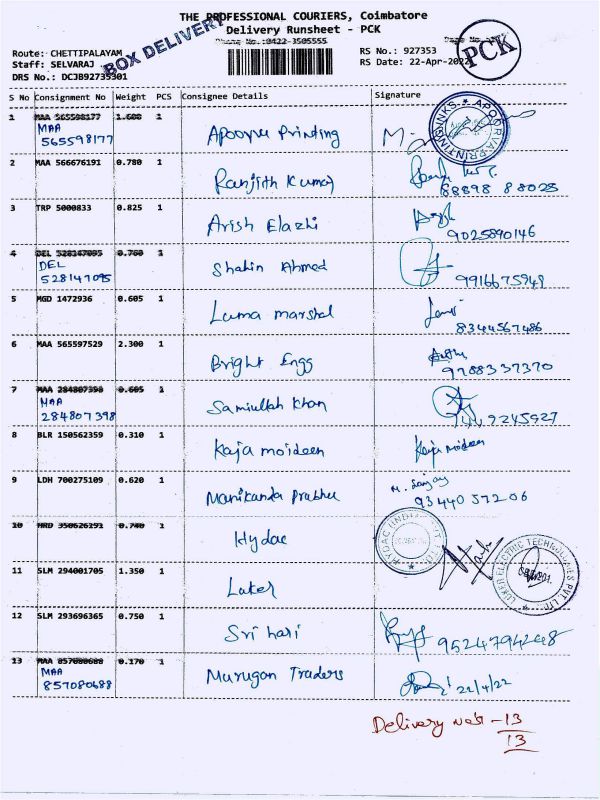 THE PROFESSIONAL COURIERS, Coimbatore
Delivery Runsheet - PCK
Phone No.:0422-3505555
Route: CHETTIPALAYAM
Staff: SELVARAJ
DRS No.: DCJB92735301
BOX DELIVERY
RS No.: 927353
RS Date: 22-Apr-2022
PCK
S No Consignment No Weight PCS Consignee Details Signature
1 MAA 565598177 1.600 1 Apoorva Printing
MAA
565598177
APOORVA PRINTING INKS
2 MAA 566676191 0.780 1 Ranjith Kumar
88898 88025
3 TRP 5000833 0.825 1 Arish Elazhi
9025890146
4 DEL 528147095 0.760 1 Shahin Ahmed
DEL
528147095
9916675949
5 MGD 1472936 0.605 1 Luma marshal
8344567486
6 MAA 565597529 2.300 1 Bright Engg
9788337370
7 MAA 284807398 0.605 1 Samiullah Khan
MAA
284807398
8 BLR 150562359 0.310 1 Kaja moideen
Kaja Moideen
9 LDH 700275109 0.620 1 Manikanda Prabhu
93440 57206
10 HRD 350626291 0.740 1 Hydac
11 SLM 294001705 1.350 1 Laker
ELECTRIC TECHNOLOGIES PVT. LTD
12 SLM 293696365 0.750 1 Sri hari
13 MAA 857080688 0.170 1 Murugan Traders
MAA
857080688
22/4/22
Delivery
13
13